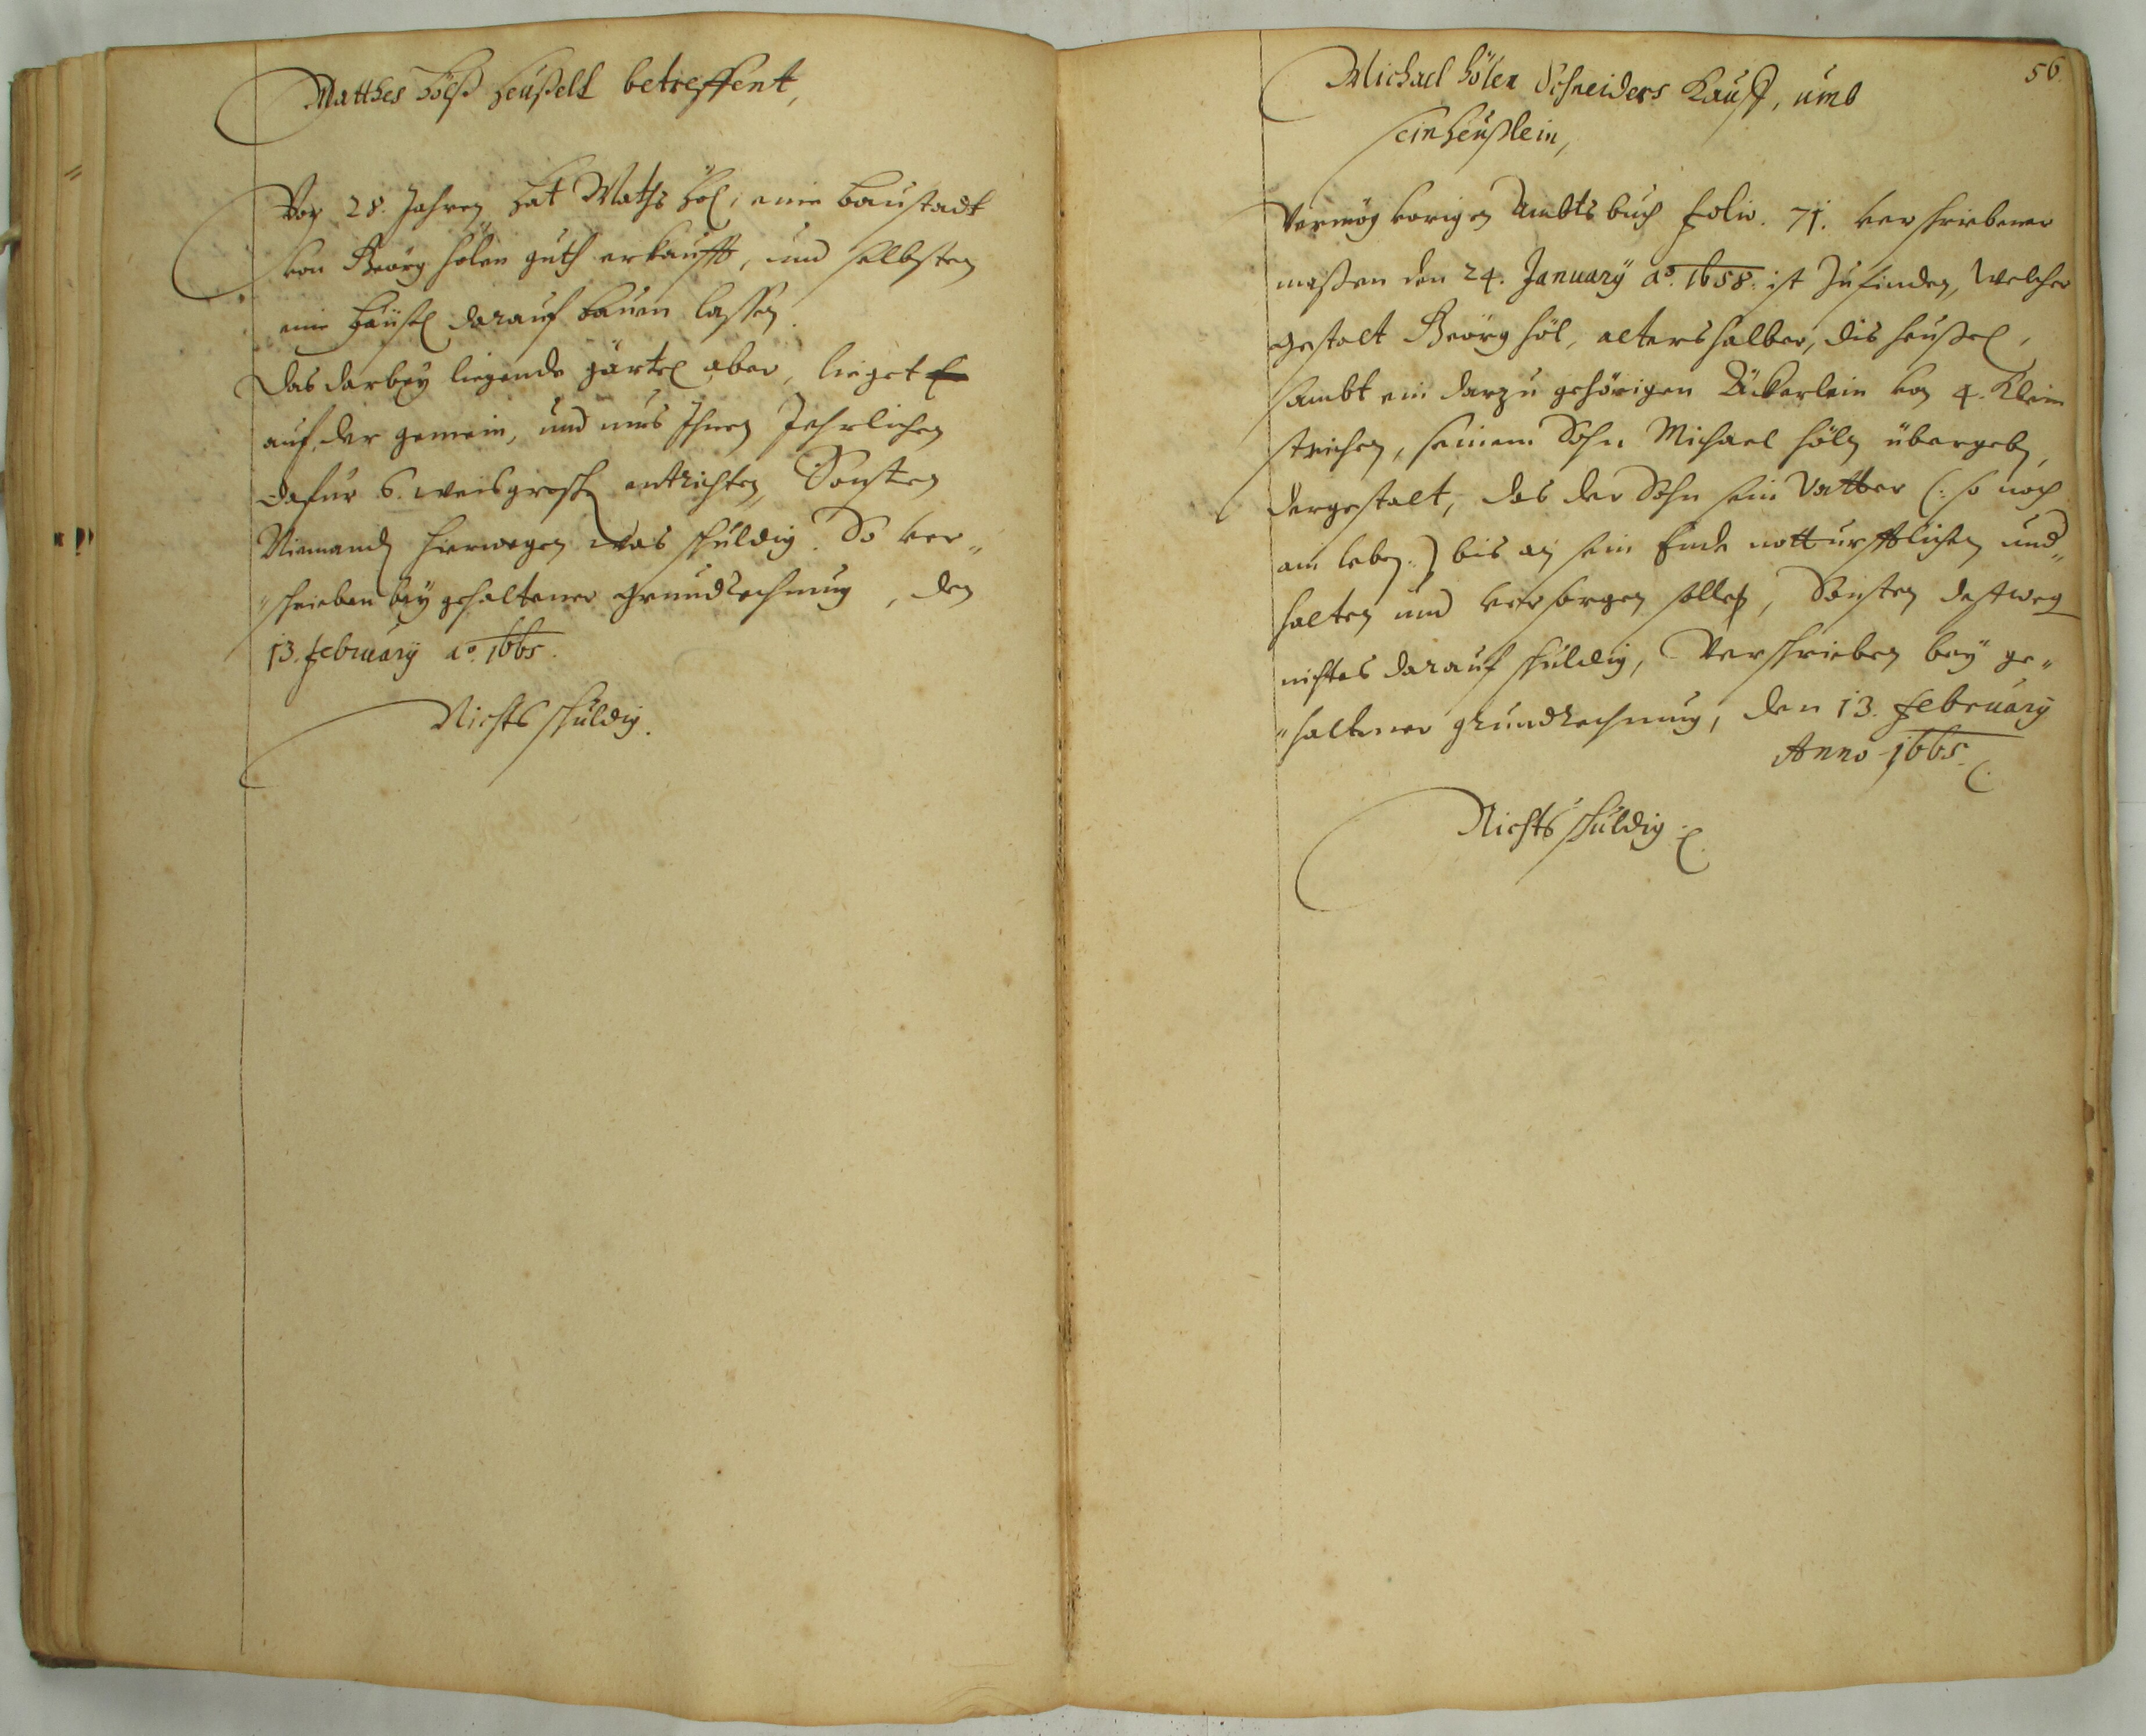 Matthes Hölß Heußell betreffent,
Vor 28. Jahren hat Maths Höl, eine Baustadt
von Georg Hölen guth erkaufft, und selbsten
ein Häüsel darauf bauen lassen.
Das darbey liegende gärtel aber, lieget
auf der gemein, und mus Ihnen Jehrlichen
dafür 6. weisgrosch entrichten, Sonsten
Niemand hierwegen was schuldig. So ver„
„schrieben bey gehaltener Grundrechnung, den
13. february ao. 1665.
Nichts schuldig.
56.
Michael Hölen Schneiders Kauff, umb
sein Heußlein,
Vermög vorigen Ambtsbuch folio. 71. verschriebener
maßen den 24. January ao. 1658. ist Zufinden, welcher
gestalt Georg Höl, altershalber, dis Heußel,
sambt ein darzu gehörigen Äckerlein von 4. Klein
strichen, seinem Sohn Michael Höln übergeben,
dergestalt, das der Sohn sein Vatter (: so noch
am leben :) bis an sein Ende notturfftlichen und„
halten und versorgen solle, Sonsten destweg
nichtes darauf schuldig, Verschrieben bey ge„
„haltener grundrechnung, den 13. february
Anno 1665.
Nichts schuldig.